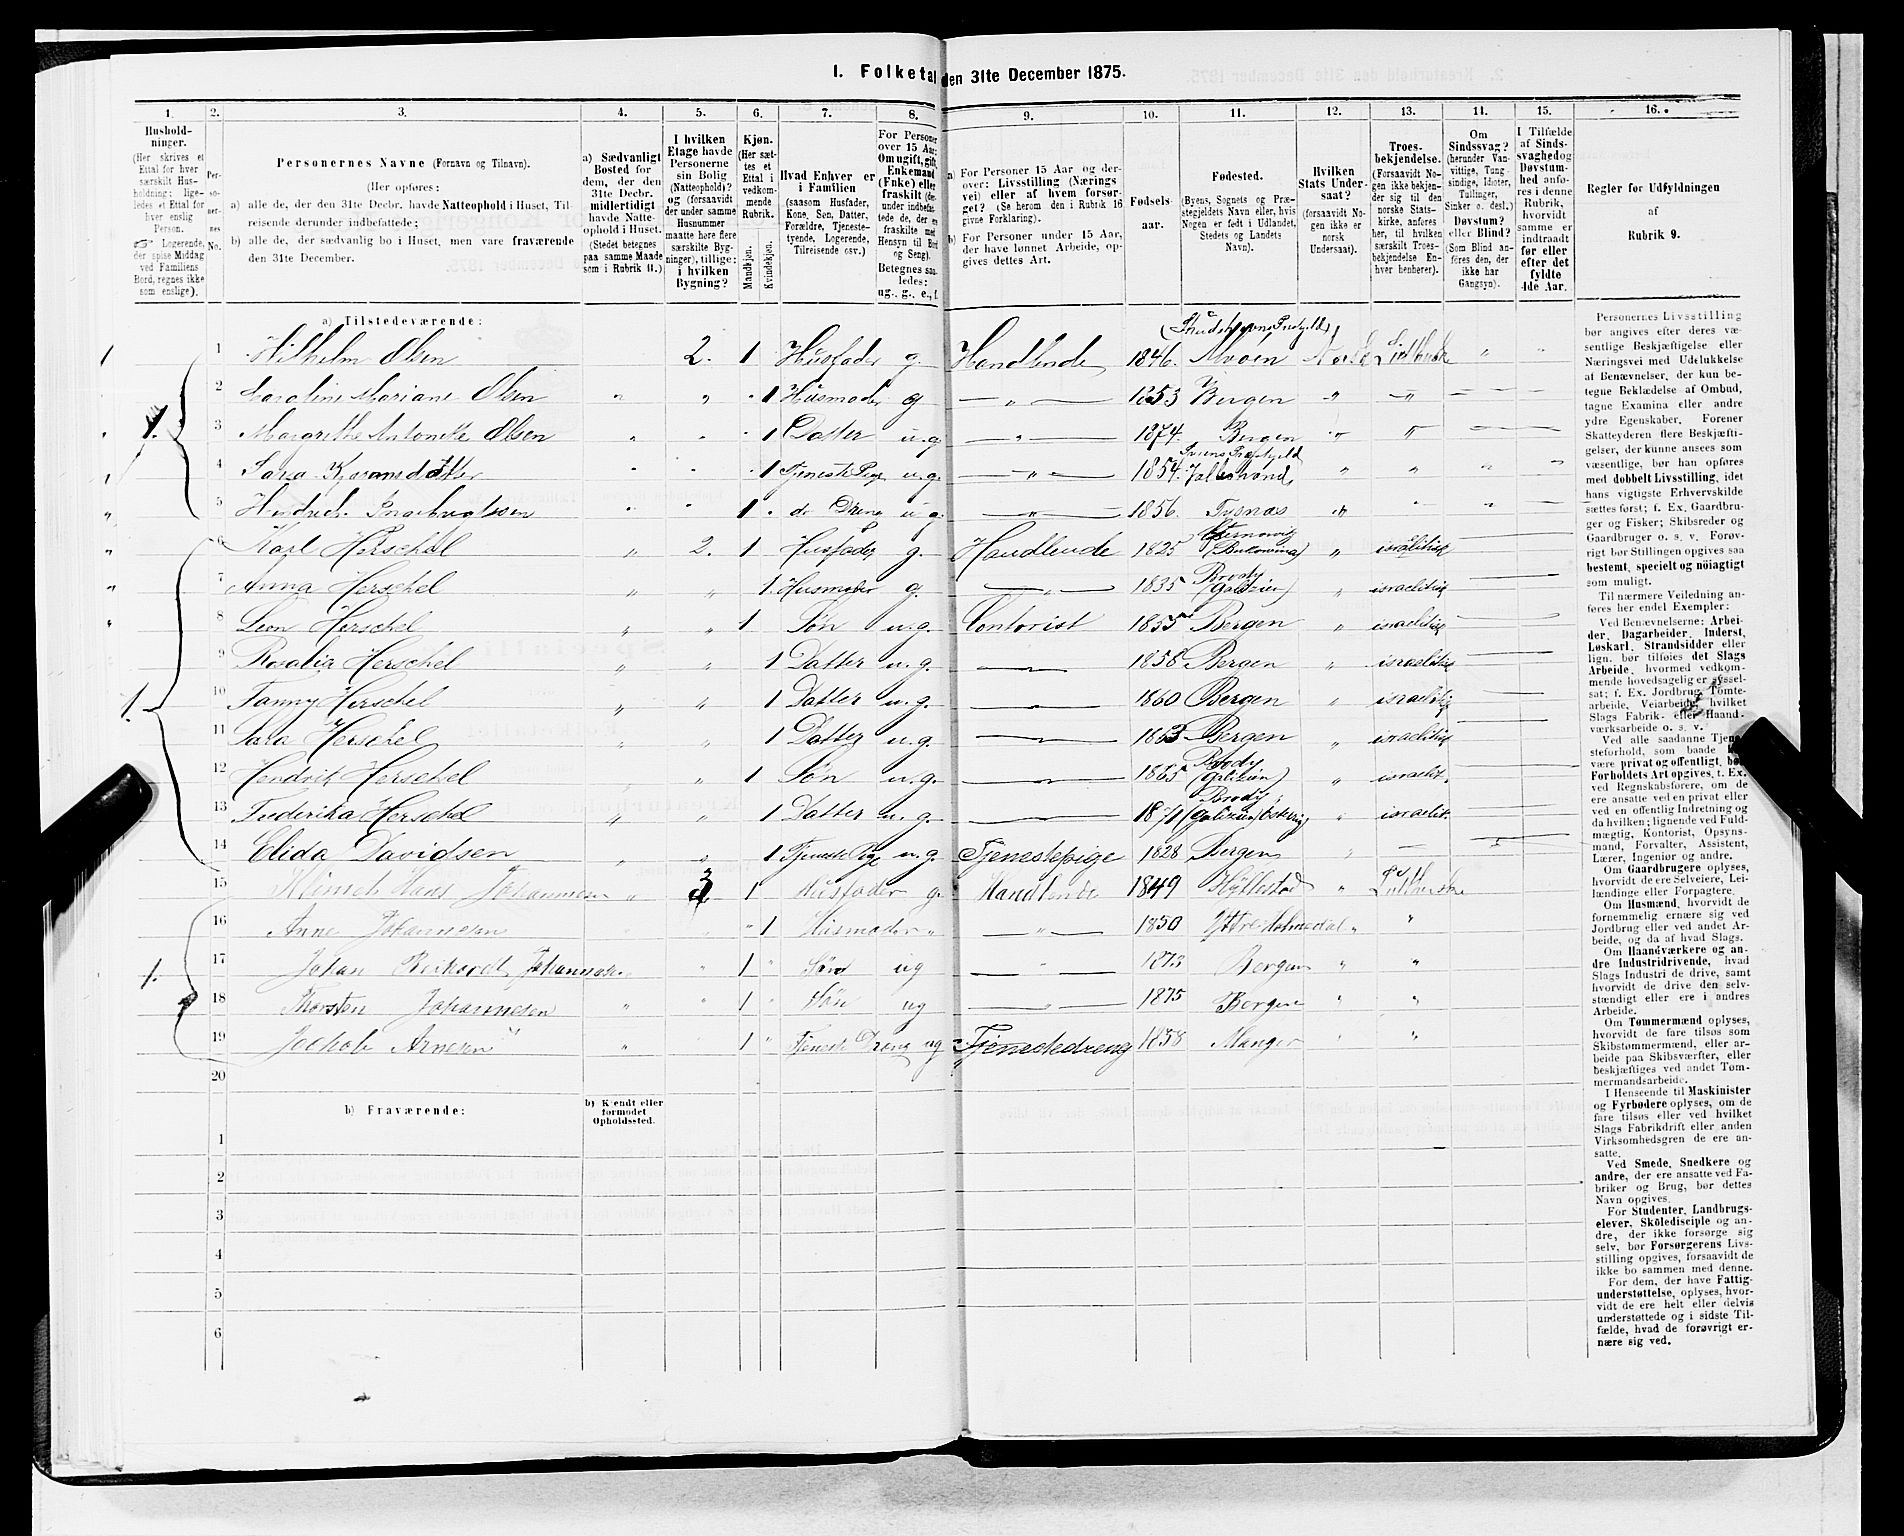 I. Folketal den 31te December 1875.
1. 2. 3. 4. 5. 6. 7. 8. 9. 10. 11. 12. 13. 14. 15. 16.
Hushold-
ninger.
(Her skrives et
Ettal for hver
særskilt Hus-
holdning; lige-
ledes et Ettal for
hver enslig
Person.
Logerende,
der spise Middag
ved Familiens
Bord, regnes ikke
som enslige).
Per-
soner-
nes
No.
Personernes Navne (Fornavn og Tilnavn).
(Her opføres:
a) alle de, der den 31te Decbr. havde Natteophold i Huset, Til-
reisende derunder indbefattede;
b) alle de, der sædvanlig bo i Huset, men vare fraværende
den 31te December.
a) Sædvanligt
Bosted for
dem, der den
31te Decbr.
midlertidigt
havde Natte-
ophold i Huset.
(Stedet betegnes
paa samme Maade
som i Rubrik 11.)
I hvilken
Etage havde
Personerne
sin Bolig
(Natteophold)?
og (forsaavidt
der under samme
Husnummer
maatte høre flere
særskilte Byg-
ninger), tillige:
i hvilken
Bygning?
Kjøn.
(Her sæt-
tes et
Ettal i
vedkom-
mende
Rubrik.
Mandkjøn.
Kvindekjøn.
Hvad Enhver er
i Familien
(saasom Husfader,
Kone, Søn, Datter,
Forældre, Tjeneste-
tyende, Logerende,
Tilreisende osv.)
For Personer
over 15 Aar:
Om ugift, gift,
Enkemand
(Enke) eller
fraskilt
Betegnes saa-
ledes:
ug., g., e., f.
a) For Personer 15 Aar og der-
over: Livsstilling (Nærings
vei) eller af hvem forsør-
get? (Se herom den i Rubrik 16
givne Forklaring).
b) For Personer under 15 Aar,
der have lønnet Arbeide, op-
gives dettes Art.
Fødsels-
aar.
Fødested.
(Byens, Sognets og Præ-
stegjeldets Navn eller, hvis
Nogen er født i Udlandet,
Stedets og Landets
Navn).
Hvilken
Stats Under-
saat?
(forsaavidt No-
gen ikke er
norsk
Undersaat).
Troes-
bekjendelse.
(Forsaavidt No-
gen ikke beken-
der sig til den
norske Stats-
kirke, anføres
her, til hvilken
særskilt Troes-
bekjendelse En-
hver henhører).
Om
Sindssvag?
(herunder Van-
vittige, Tung-
sindige, Idioter,
Tullinger,
Sinker o. desl.)
Døvstum?
eller Blind?
(Som Blind an-
føres den, der
ikke har
Gangsyn).
I Tilfælde
af Sinds-
svaghed og
Døvstum-
hed anføres
i denne
Rubrik,
hvorvidt
samme er
indtraadt
før eller
efter det
fyldte
4de Aar.
Regler for Udfyldningen
af
Rubrik 9.
a) Tilstedeværende:
1 Wilhelm Olsen 2. 1 Husfader g Handlende 1846 Norsk Lutherske
2 Karoline Mariane Olsen " " 1 Husmoder g — " — 1853 Bergen " — " —
3 Margrethe Antonette Olsen " " 1 Datter u.g — " — 1874 Bergen " "
4 1 Tjeneste Pige u.g. — " — 1854 " " "
5 Hendrich 1 do Dreng u.g — " — 1856. Tysnæs "
6 Karl Herschel " 2. 1 Husfader g. Handlende 1825 Czernowig (Bukowina) " israelitisk
7 Anna Herschel " " 1 Husmoder g. — " — 1835 Brody (Galizien) " israelitisk
8 Leon Herschel " " 1 Søn u.g. Contorist 1855 Bergen " israelitisk
9 Rosalia Herschel " " 1 Datter u.g. — 1858 Bergen " israelitisk
10 Fanny Herschel " " 1 Datter u.g. — 1860 Bergen " israelitisk
11 Sara Herschel " " 1 Datter u.g. — 1863 Bergen " israelitisk
12 Hendrik Herschel " 1 Søn u.g. — 1865 Brody (Galizien) " israelit.
13 Frederika Herschel " " 1 Datter u.g. — 1871 Brody, (Galizien) " israelit.
14 Elida Davidsen " " 1 Tjeneste Pige u.g. Tjenestepige 1828 Bergen " —
15 Hans Johannesen " 3 1 Husfader g. Handlende 1849 Hyllestad " Lutherske
16 Anne Johannesen " 1 Husmoder " — " — 1850 Yttre Holmedal " "
17 Johan Johannesen " 1 " Søn ug — " — 1873 Bergen " "
18 Thorsten Johannesen " " 1 Søn ug — " — 1875 Bergen " "
19 Jackob Arnesen " 1 " Tjeneste Dreng ug Tjenestedreng 1858 Manger "
20
b) Fraværende:
b) Kjendt eller
formodet
Opholdssted.
1
2
3
4
5
6
Personernes Livsstilling
bør angives efter deres væ-
sentlige Beskjæftigelse eller
Næringsvei med Udelukkelse
af Benævnelser, der kun be-
tegne Beklædelse af Ombud,
tagne Examina eller andre
ydre Egenskaber. Forener
Skatteyderen flere Beskjæfti-
gelser, der kunne ansees som
væsentlige, bør han opføres
med dobbelt Livsstilling, idet
hans vigtigste Erhvervskilde
sættes først; f. Ex. Gaardbru-
ger og Fisker; Skibsreder og
Gaardbruger o. s. v. Forøv-
rigt bør Stillingen opgives saa
bestemt, specielt og nöiagtigt
som muligt.
Til nærmere Veiledning an-
føres her endel Exempler:
Ved Benævnelserne: Arbei-
der, Dagarbeider, Inderst,
Løskarl, Strandsidder eller
lign. bør tilføies det Slags
Arbeide, hvormed vedkom-
mende hovedsagelig er syssel-
sat; f. Ex. Jordbrug, Tomte-
arbeide, Veiarbeide, hvilket
Slags Fabrik- eller Haand-
værksarbeide o. s. v.
Ved alle saadanne Tjene-
steforhold, som baade kan
være privat og offentligt, bør
Forholdets Art opgives, t. Ex.
ved Regnskabsførere, om de
ere ansatte ved en privat eller
ved en offentlig Indretning og
da hvilken; lignende ved Fuld-
mægtig, Kontorist, Opsyns-
mand, Forvalter, Assistent,
Lærer, Ingeniør og andre.
Om Gaardbrugere oplyses,
hvorvidt de ere Selveiere, Lei-
lændinge eller Forpagtere.
Om Husmænd, hvorvidt de
fornemmelig ernære sig ved
Jordbrug eller ved andet Ar-
beide, og da af hvad Slags.
Om Haandværkere og an-
dre Industridrivende, hvad
Slags Industri de drive, samt
hvorvidt de drive den selv-
stændigt eller ere i andres
Arbeide.
Om Tømmermænd oplyses,
hvorvidt de fare tilsøs som
Skibstømmermænd, eller ar-
beide paa Skibsværfter, eller
beskjæftiges ved andet Tøm-
mermandsarbeide.
I Henseende til Maskinister
og Fyrbødere oplyses, om de
fare tilsøs eller ved hvilket
Slags Fabrikdrift eller anden
Virksomhedsgren de ere an-
satte.
Ved Smede, Snedkere og
andre, der ere ansatte ved Fa-
briker og Brug, bør dettes
Navn opgives.
For Studenter, Landbrugs-
elever, Skoledisciple og an-
dre, der ikke forsørge sig
selv, bør Forsørgerens Livs-
stilling opgives, forsaavidt de
ikke bo sammen med denne.
For dem, der have Fattig-
understøttelse, oplyses, hvor-
vidt de ere helt eller delvis
understøttede og i sidste Til-
fælde, hvad de forøvrigt er-
nære sig ved.